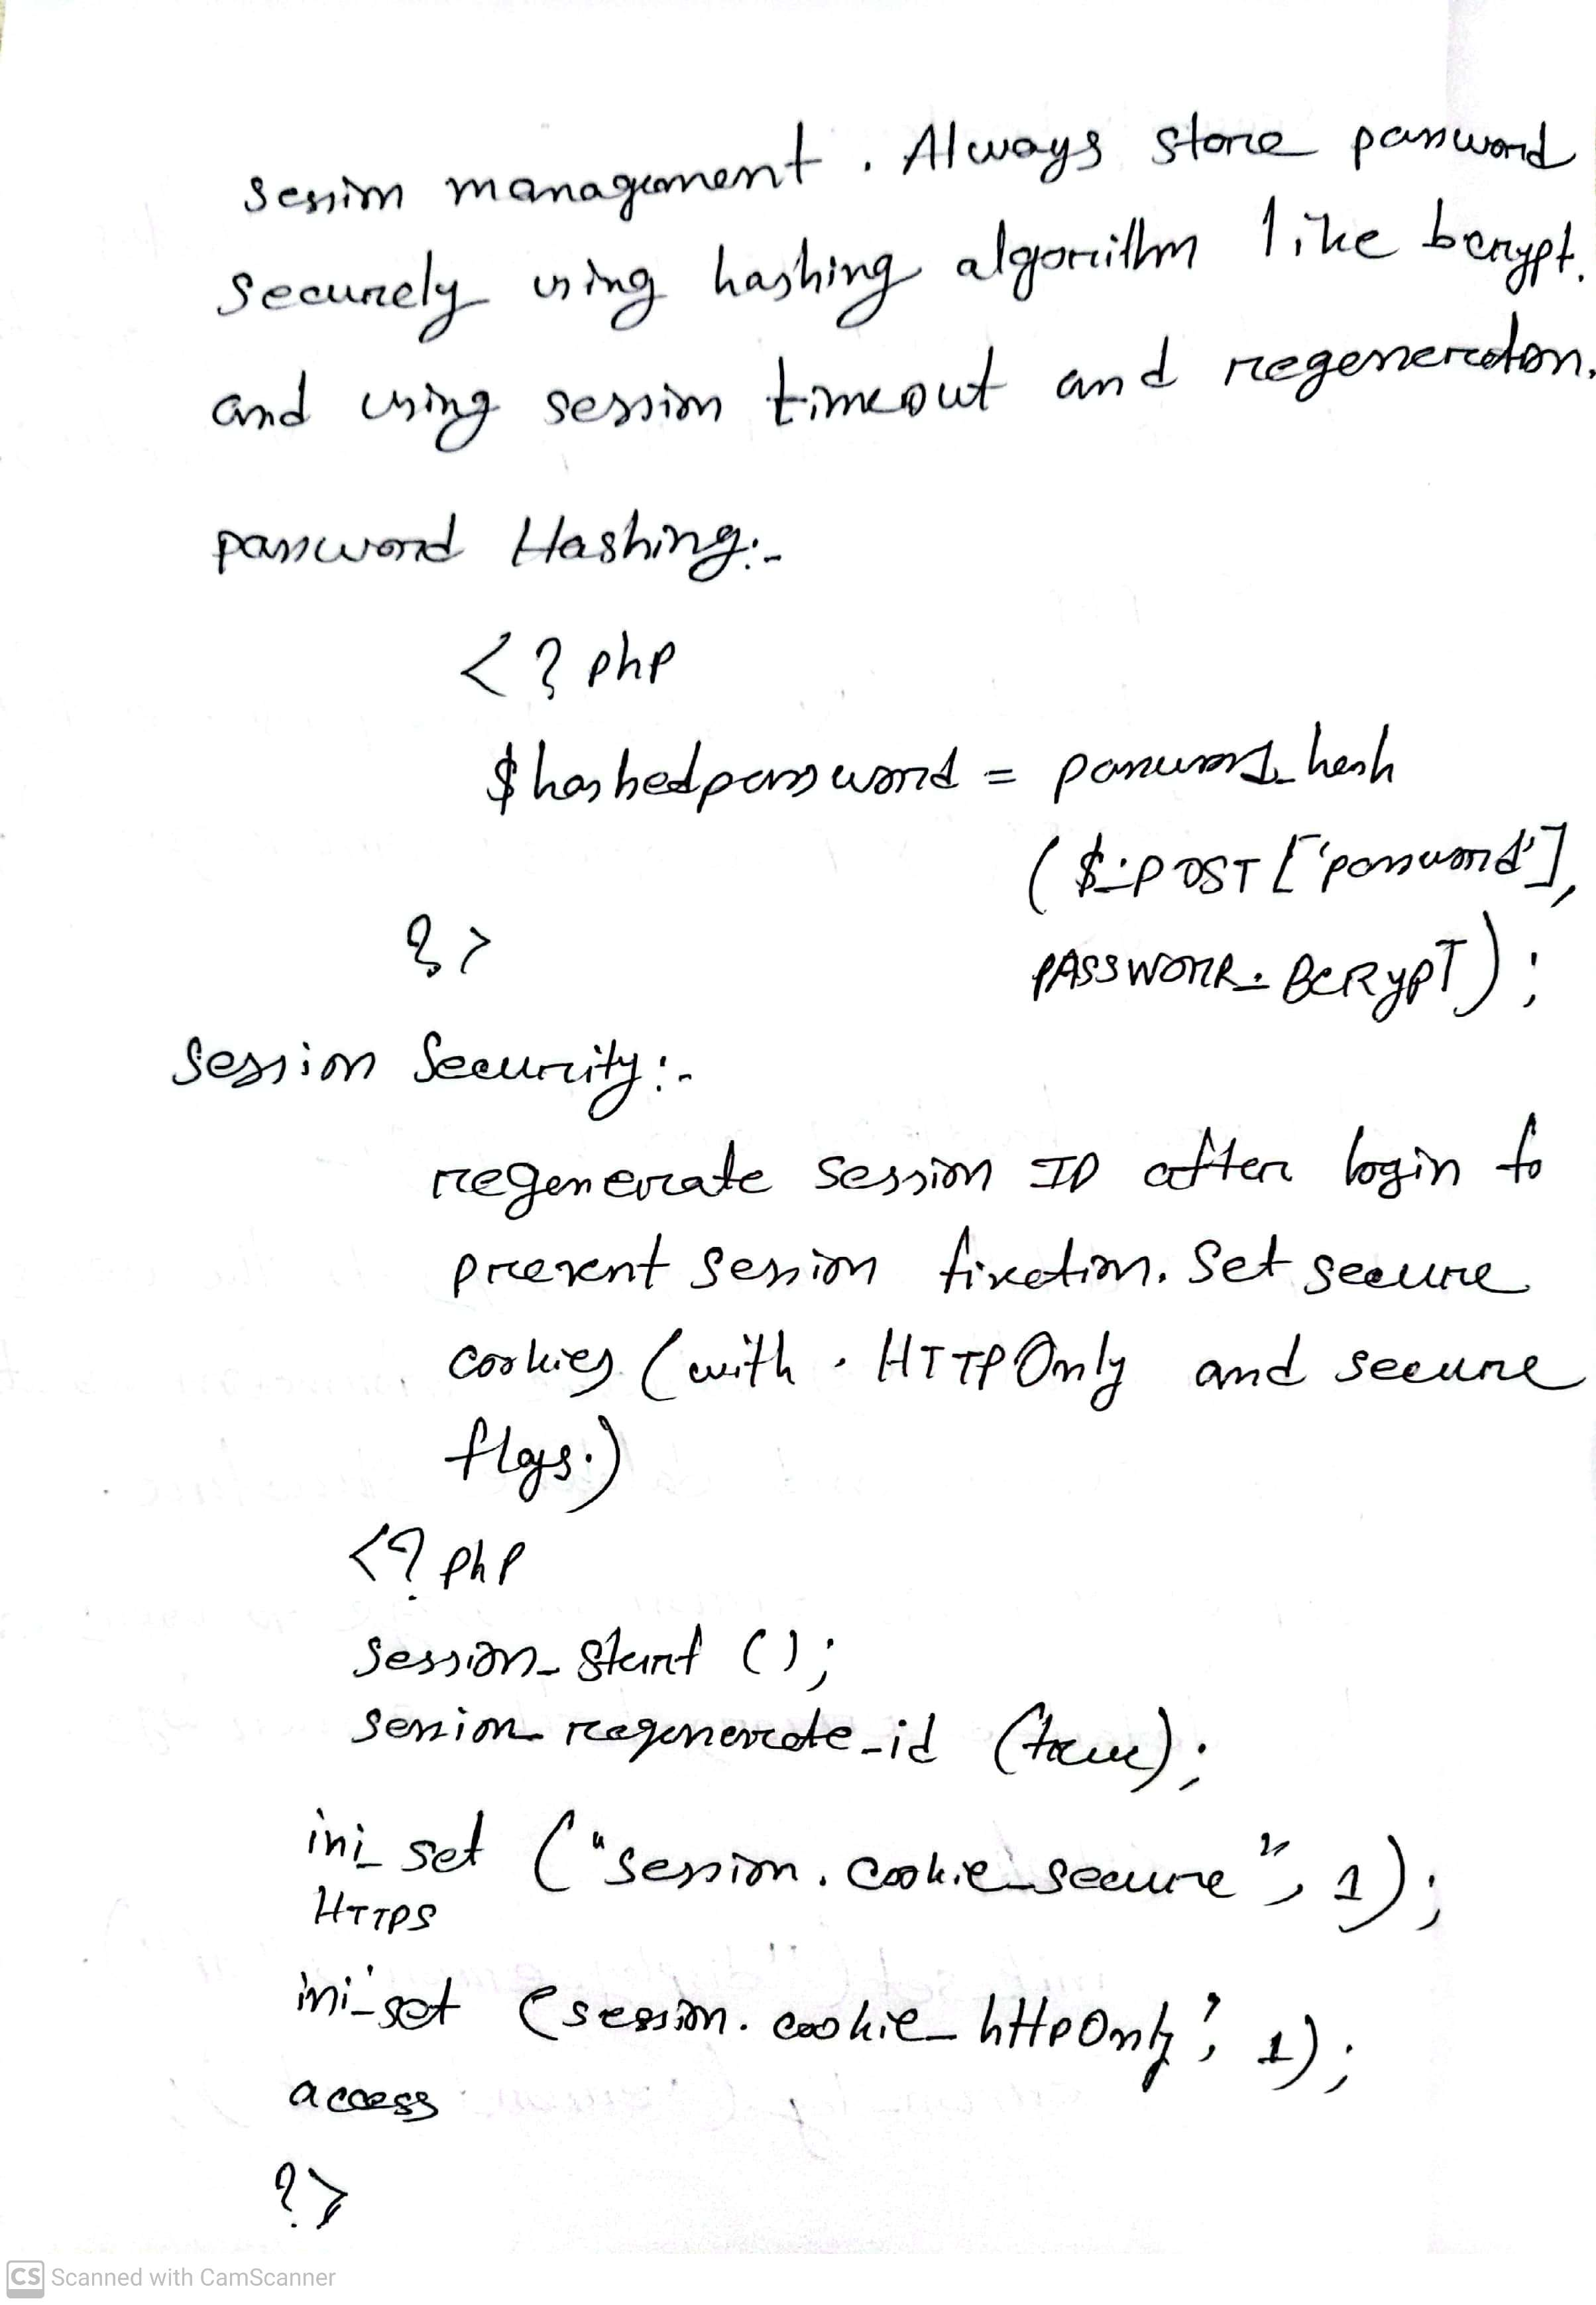 session management. Always store password
securely using hashing algorithm like bcrypt.
and using session timeout and regeneration.
password Hashing:-
<? php
$hashedpassword = password_hash
($_POST ['password'],
?>
PASSWORR_BCRYPT);
Session Security:-
regenerate session ID after login to
prevent session fixation. Set secure
cookies (with HTTPOnly and secure
flags.)
<? php
session_start ();
session_regenerate_id (true);
ini_set ("session.cookie_secure", 1);
HTTPS
ini_set (session.cookie_httpOnly', 1);
access
?>
CS Scanned with CamScanner